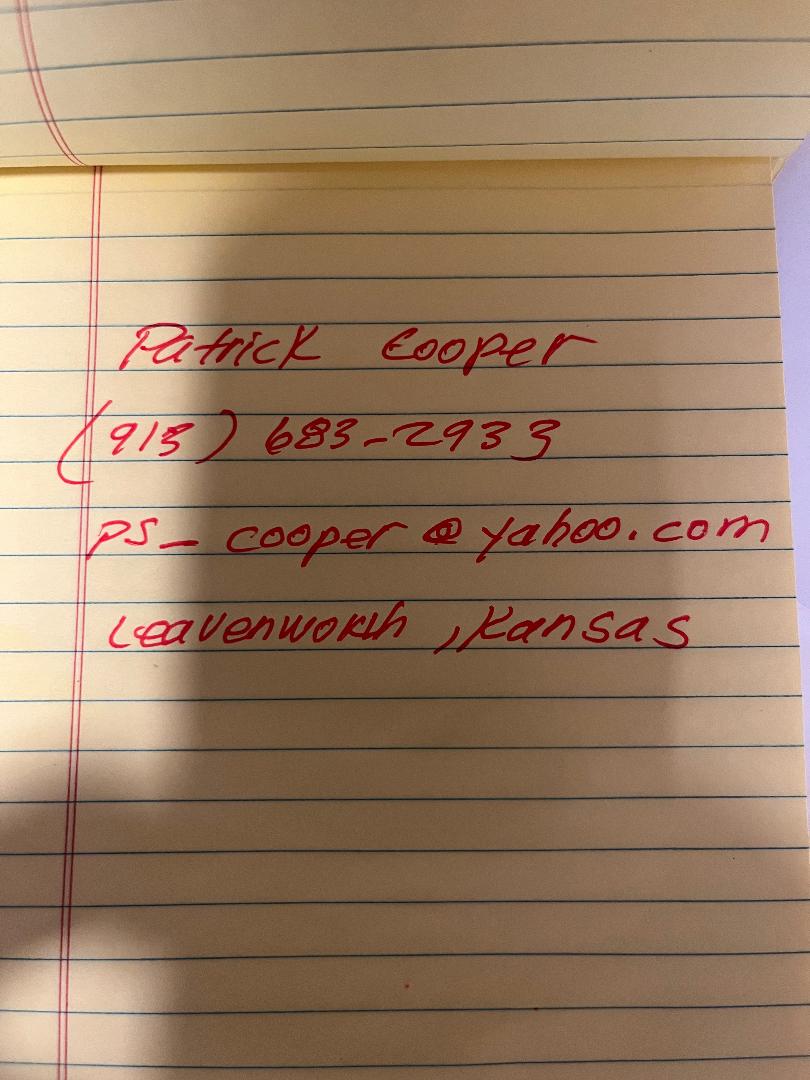 Patrick Cooper
(915) 683-2933
ps_cooper@yahoo.com
Leavenworth, Kansas